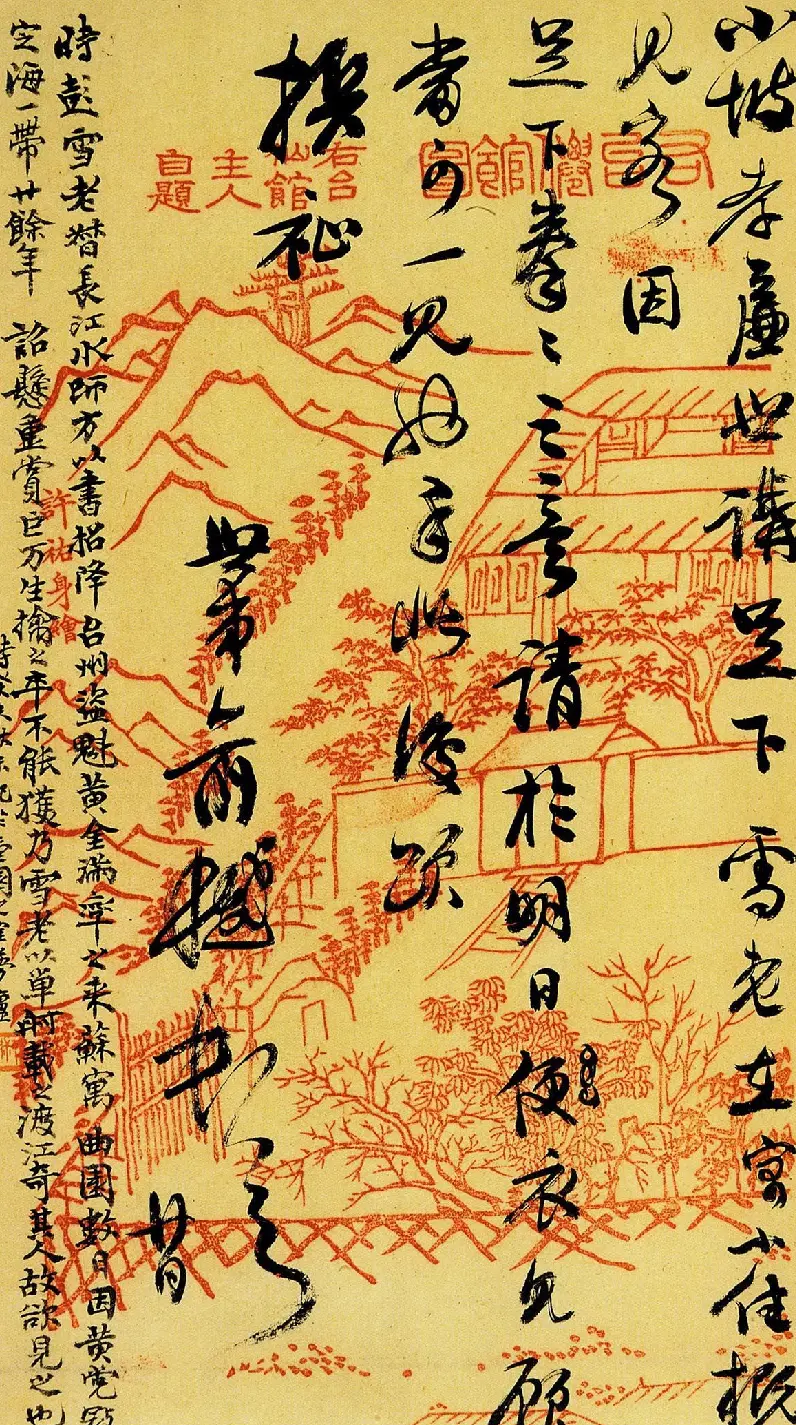 小坡孝廉世講足下雪老在寓小住概
見客因
足下拳〻之意請於明日便衣見顧
當可一見也手此復頌
撰祉
世弟俞樾
廿日
時彭雪老督長江水師方以書招降台州盜魁黃金滿率之來蘇寓曲園數日因黃党
定海一帶廿餘年 詔懸重賞巨万生擒之卒不能獲乃雪老以單舸載之渡江奇其人故欲見之也
右台僊館圖
右台
仙館
主人
自題
許祐身繪